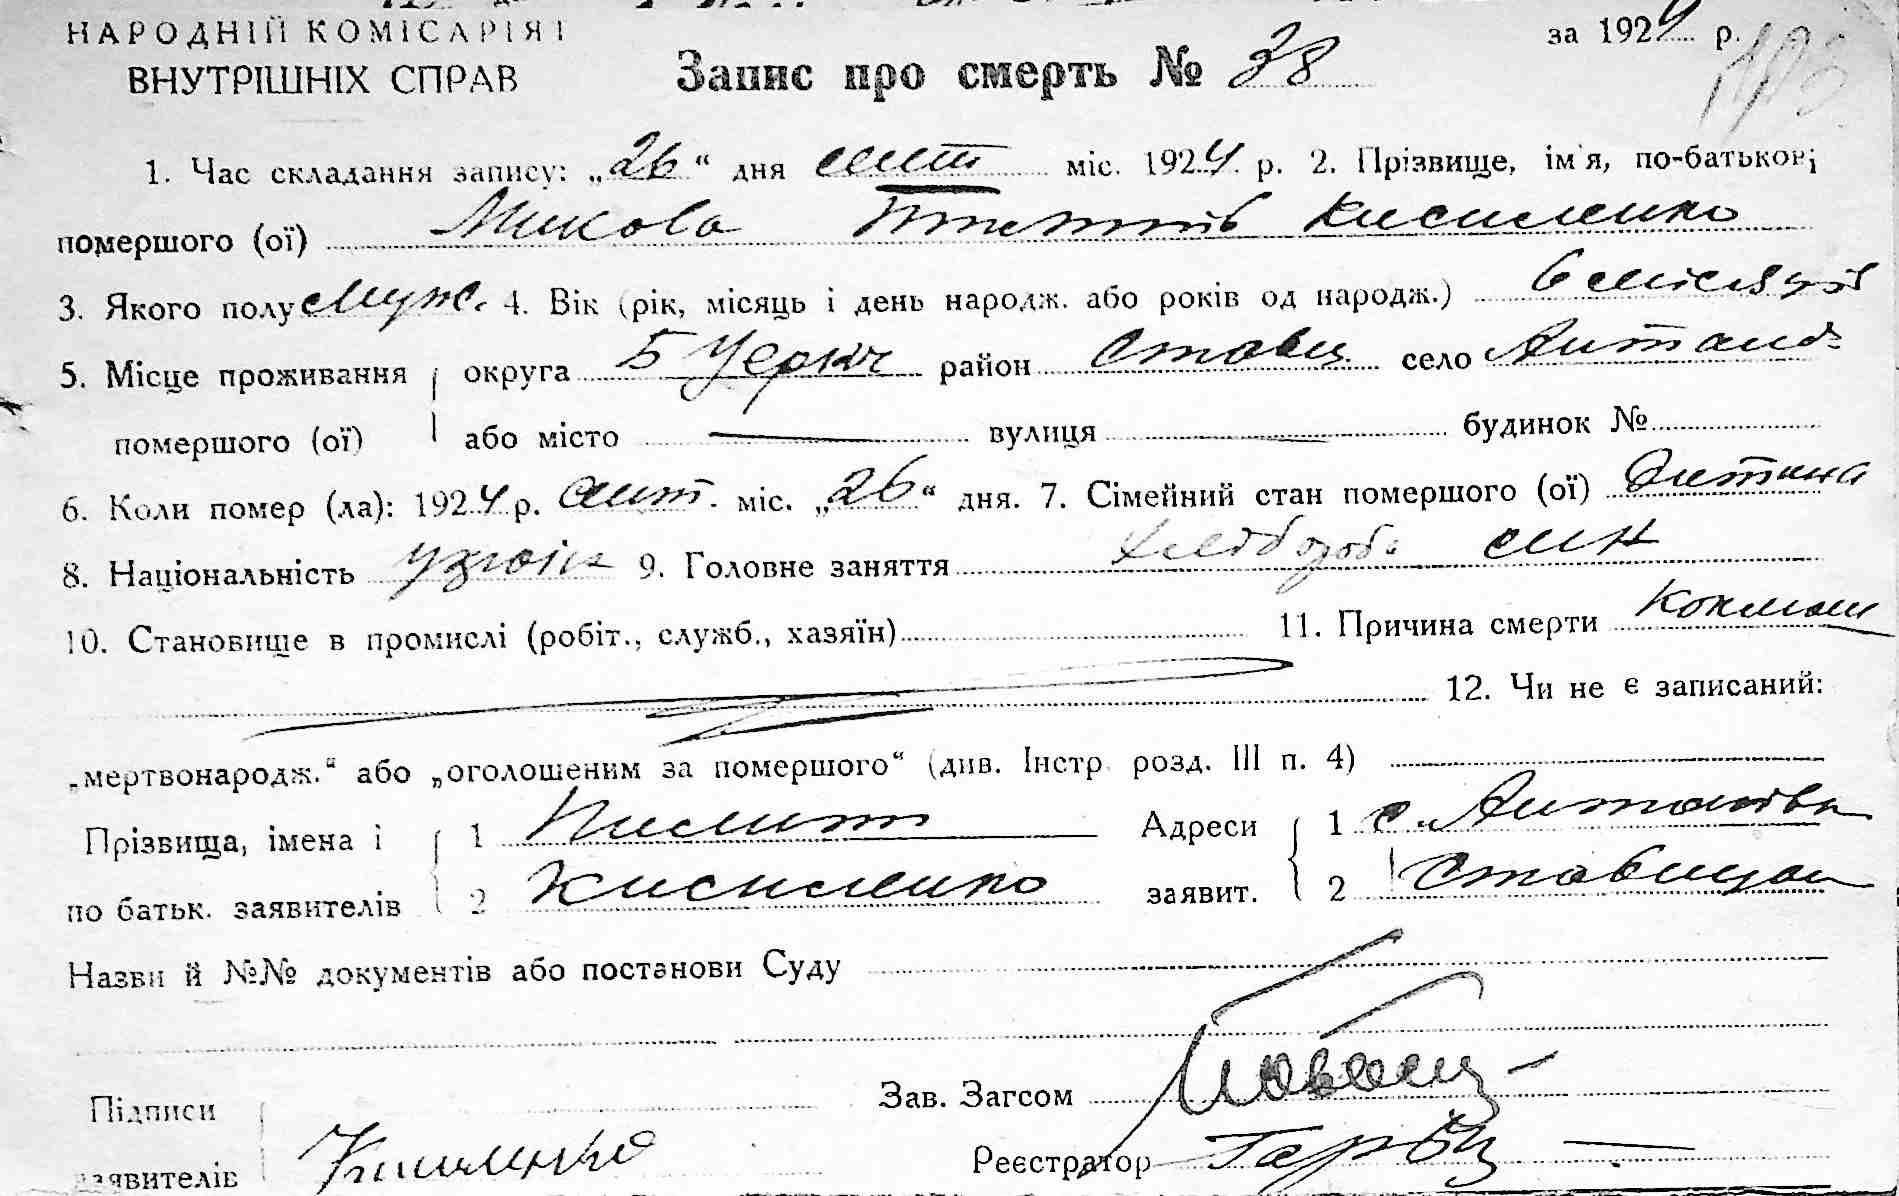 НАРОДНІЙ КОМІСАРІЯТ
ВНУТРІШНІХ СПРАВ
Запис про смерть № 38
за 1924 р.
1. Час складання запису: „26“ дня сент міс. 1924 р. 2. Прізвище, ім'я, по-батькові
помершого (ої) Микола Кисиленко
3. Якого полу Муж. 4. Вік (рік, місяць і день народж. або років од народж.) 6 місяців
5. Місце проживання округа Б Церкч район Ставищ село Антанів
помершого (ої) або місто — вулиця — будинок №
6. Коли помер (ла): 1924 р. сент. міс. „26“ дня. 7. Сімейний стан помершого (ої) Дитина
8. Національність україн 9. Головне заняття Хлібороб син
10. Становище в промислі (робіт., служб., хазяїн) 11. Причина смерти Коклюш
12. Чи не є записаний:
„мертвонародж.“ або „оголошеним за помершого“ (див. Інстр. розд. III п. 4)
Прізвища, імена і 1 Адреси 1 с. Антонівка
по батьк. заявителів 2 Кисиленко заявит. 2 Ставищан
Назви й №№ документів або постанови Суду
Зав. Загсом
Підписи
заявителів Кисиленко Реєстратор